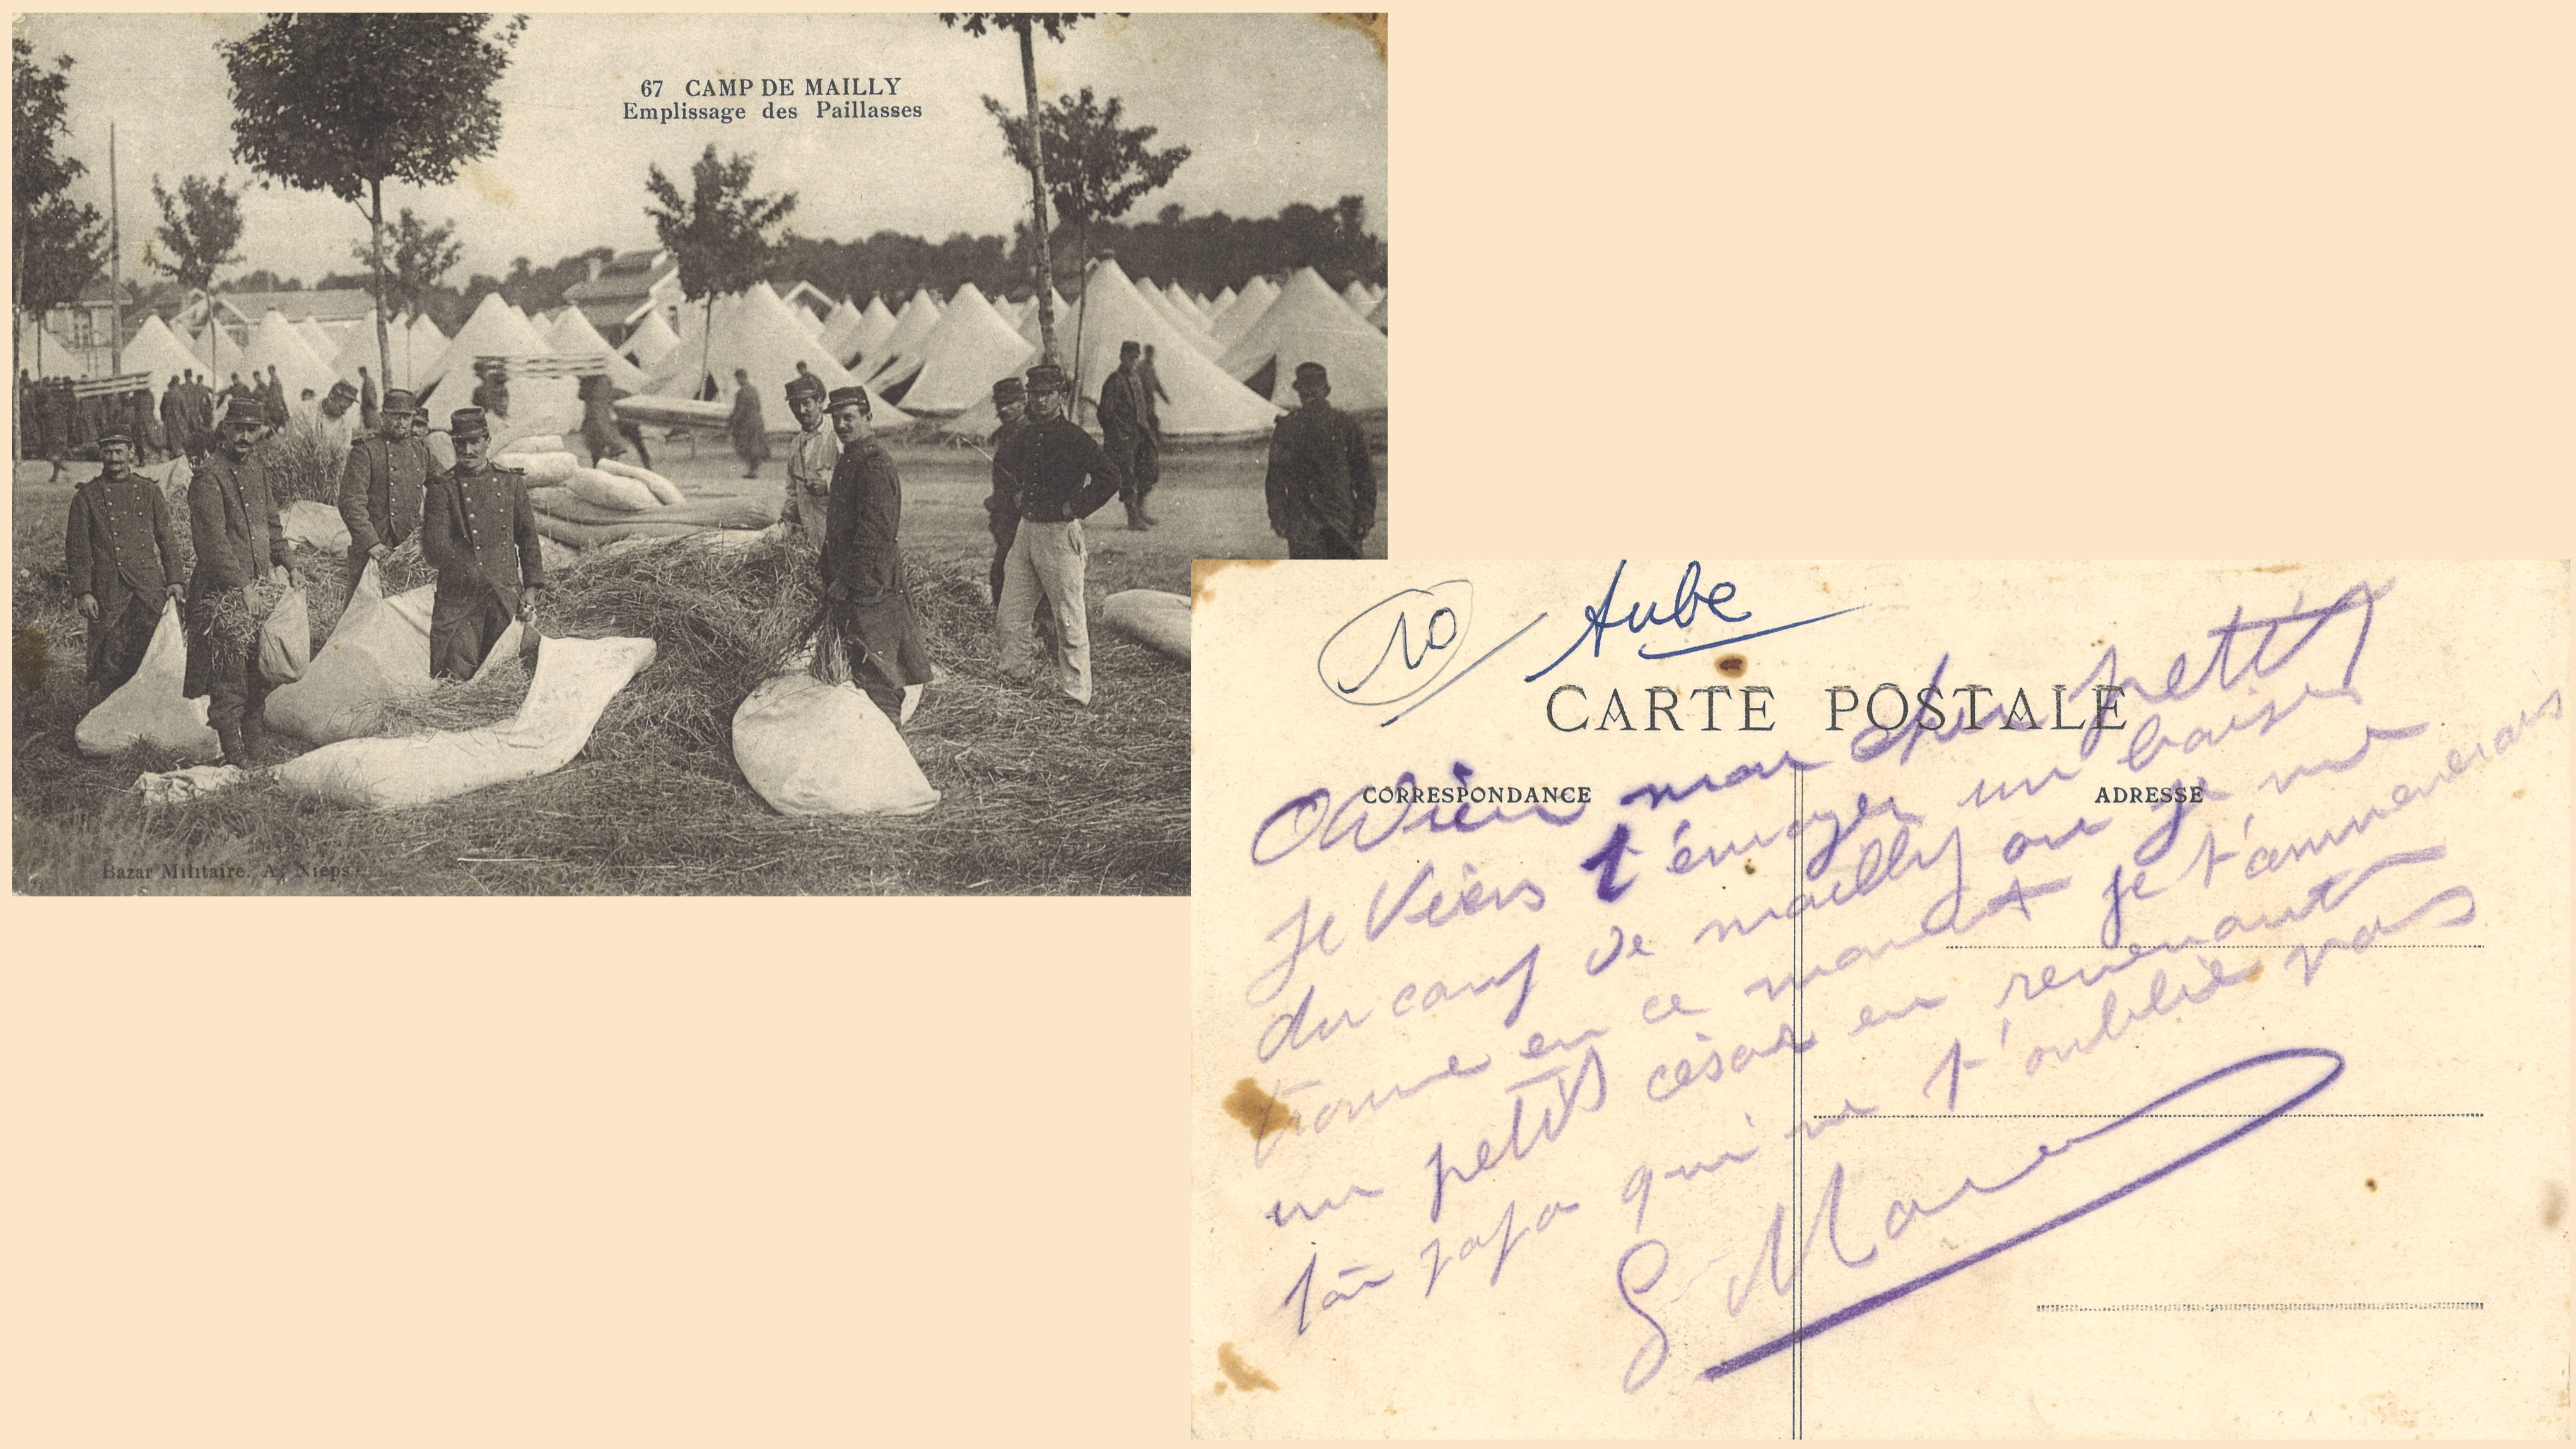 67 CAMP DE MAILLY
Emplissage des Paillasses
Bazar Militaire. A. Nieps
10 Aube
CARTE POSTALE
CORRESPONDANCE
ADRESSE
mon cher petit
Je Viens t'envoyer un baiser
du camp de mailly ou je me
trouve en ce moment je t'ammenerais
un petit césar en revenant
ton papa qui ne t'oublie pas